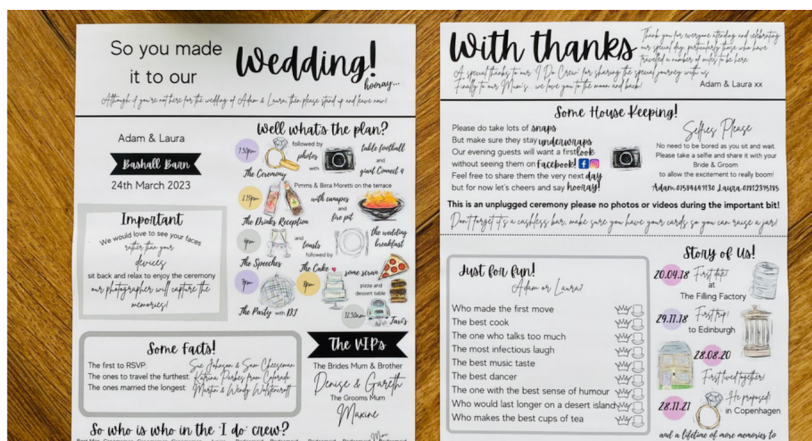 So you made
it to our
Wedding!
hooray...
Although if you're not here for the wedding of Adam & Laura, then please stand up and leave now!
Adam & Laura
Bashall Barn
24th March 2023
Important
We would love to see your faces
rather than your
devices
sit back and relax to enjoy the ceremony
our photographer will capture the
memories!
Well what's the plan?
1:30pm
followed by
photos
with
table football
and
giant Connect 4
The Ceremony
Pimms & Birra Moretti on the terrace
with canapes
and
fire pit
The Drinks Reception
4pm
and
toasts
followed by
the wedding
breakfast
The Speeches
The Cake
some scran
pizza and
dessert table
The Party with DJ
12:30am
Taxis
Some Facts!
The first to RSVP: Sue Johnson & Sam Cheeseman
The ones to travel the furthest: Katrina Parkes from Colorado
The ones married the longest: Martin & Wendy Wolstencroft
The VIPs
The Brides Mum & Brother
Denise & Gareth
The Grooms Mum
Maxine
So who is who in the 'I do' crew?
With thanks
Thank you for everyone attending and celebrating
our special day, particularly those who have
travelled a number of miles to be here.
A special thanks to our 'I Do Crew' for sharing the special journey with us
Finally to our Mum's.. we love you to the moon and back!
Adam & Laura xx
Some House Keeping!
Please do take lots of snaps
But make sure they stay underwraps
Our evening guests will want a first look
without seeing them on facebook!
Feel free to share them the very next day
but for now let's cheers and say hooray!
Selfies Please
No need to be bored as you sit and wait.
Please take a selfie and share it with your
Bride & Groom
to allow the excitement to really boom!
This is an unplugged ceremony please no photos or videos during the important bit!
Don't forget it's a cashless bar, make sure you have your cards so you can raise a jar!
Just for fun!
Adam or Laura?
Who made the first move
The best cook
The one who talks too much
The most infectious laugh
The best music taste
The best dancer
The one with the best sense of humour
Who would last longer on a desert island
Who makes the best cups of tea
Story of Us!
20.04.18 First date!
at
The Filling Factory
29.11.18 First trip!
to Edinburgh
28.08.20
First lived together!
28.11.21 He proposed!
in Copenhagen
and a lifetime of more memories to